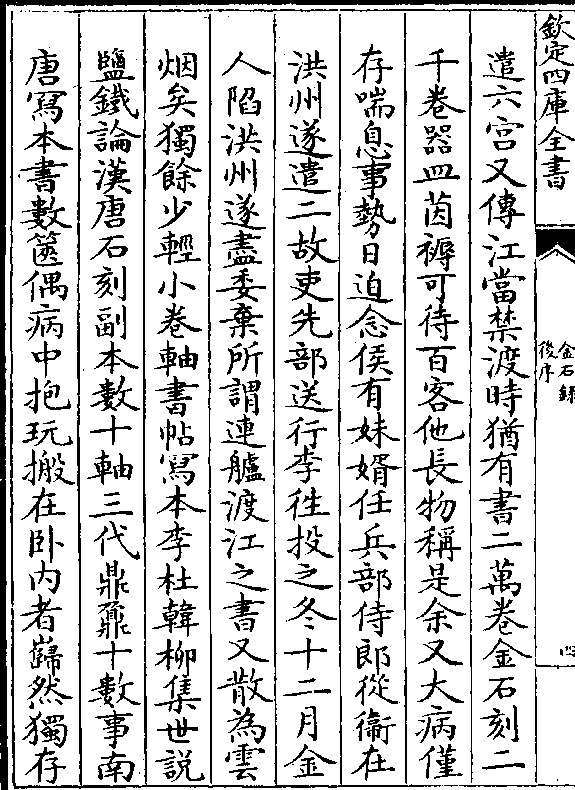 欽定四庫全書
金石録
後序
四
遣六宮又傳江當禁渡時猶有書二萬卷金石刻二
千卷器皿茵褥可待百客他長物稱是余又大病僅
存喘息事勢日迫念侯有妹婿任兵部侍郎從衞在
洪州遂遣二故吏先部送行李往投之冬十二月金
人陷洪州遂盡委棄所謂連艫渡江之書又散為雲
烟矣獨餘少輕小卷軸書帖寫本李杜韓柳集世說
鹽鐵論漢唐石刻副本數十軸三代鼎鼐十數事南
唐寫本書數篋偶病中抱玩搬在卧内者巋然獨存